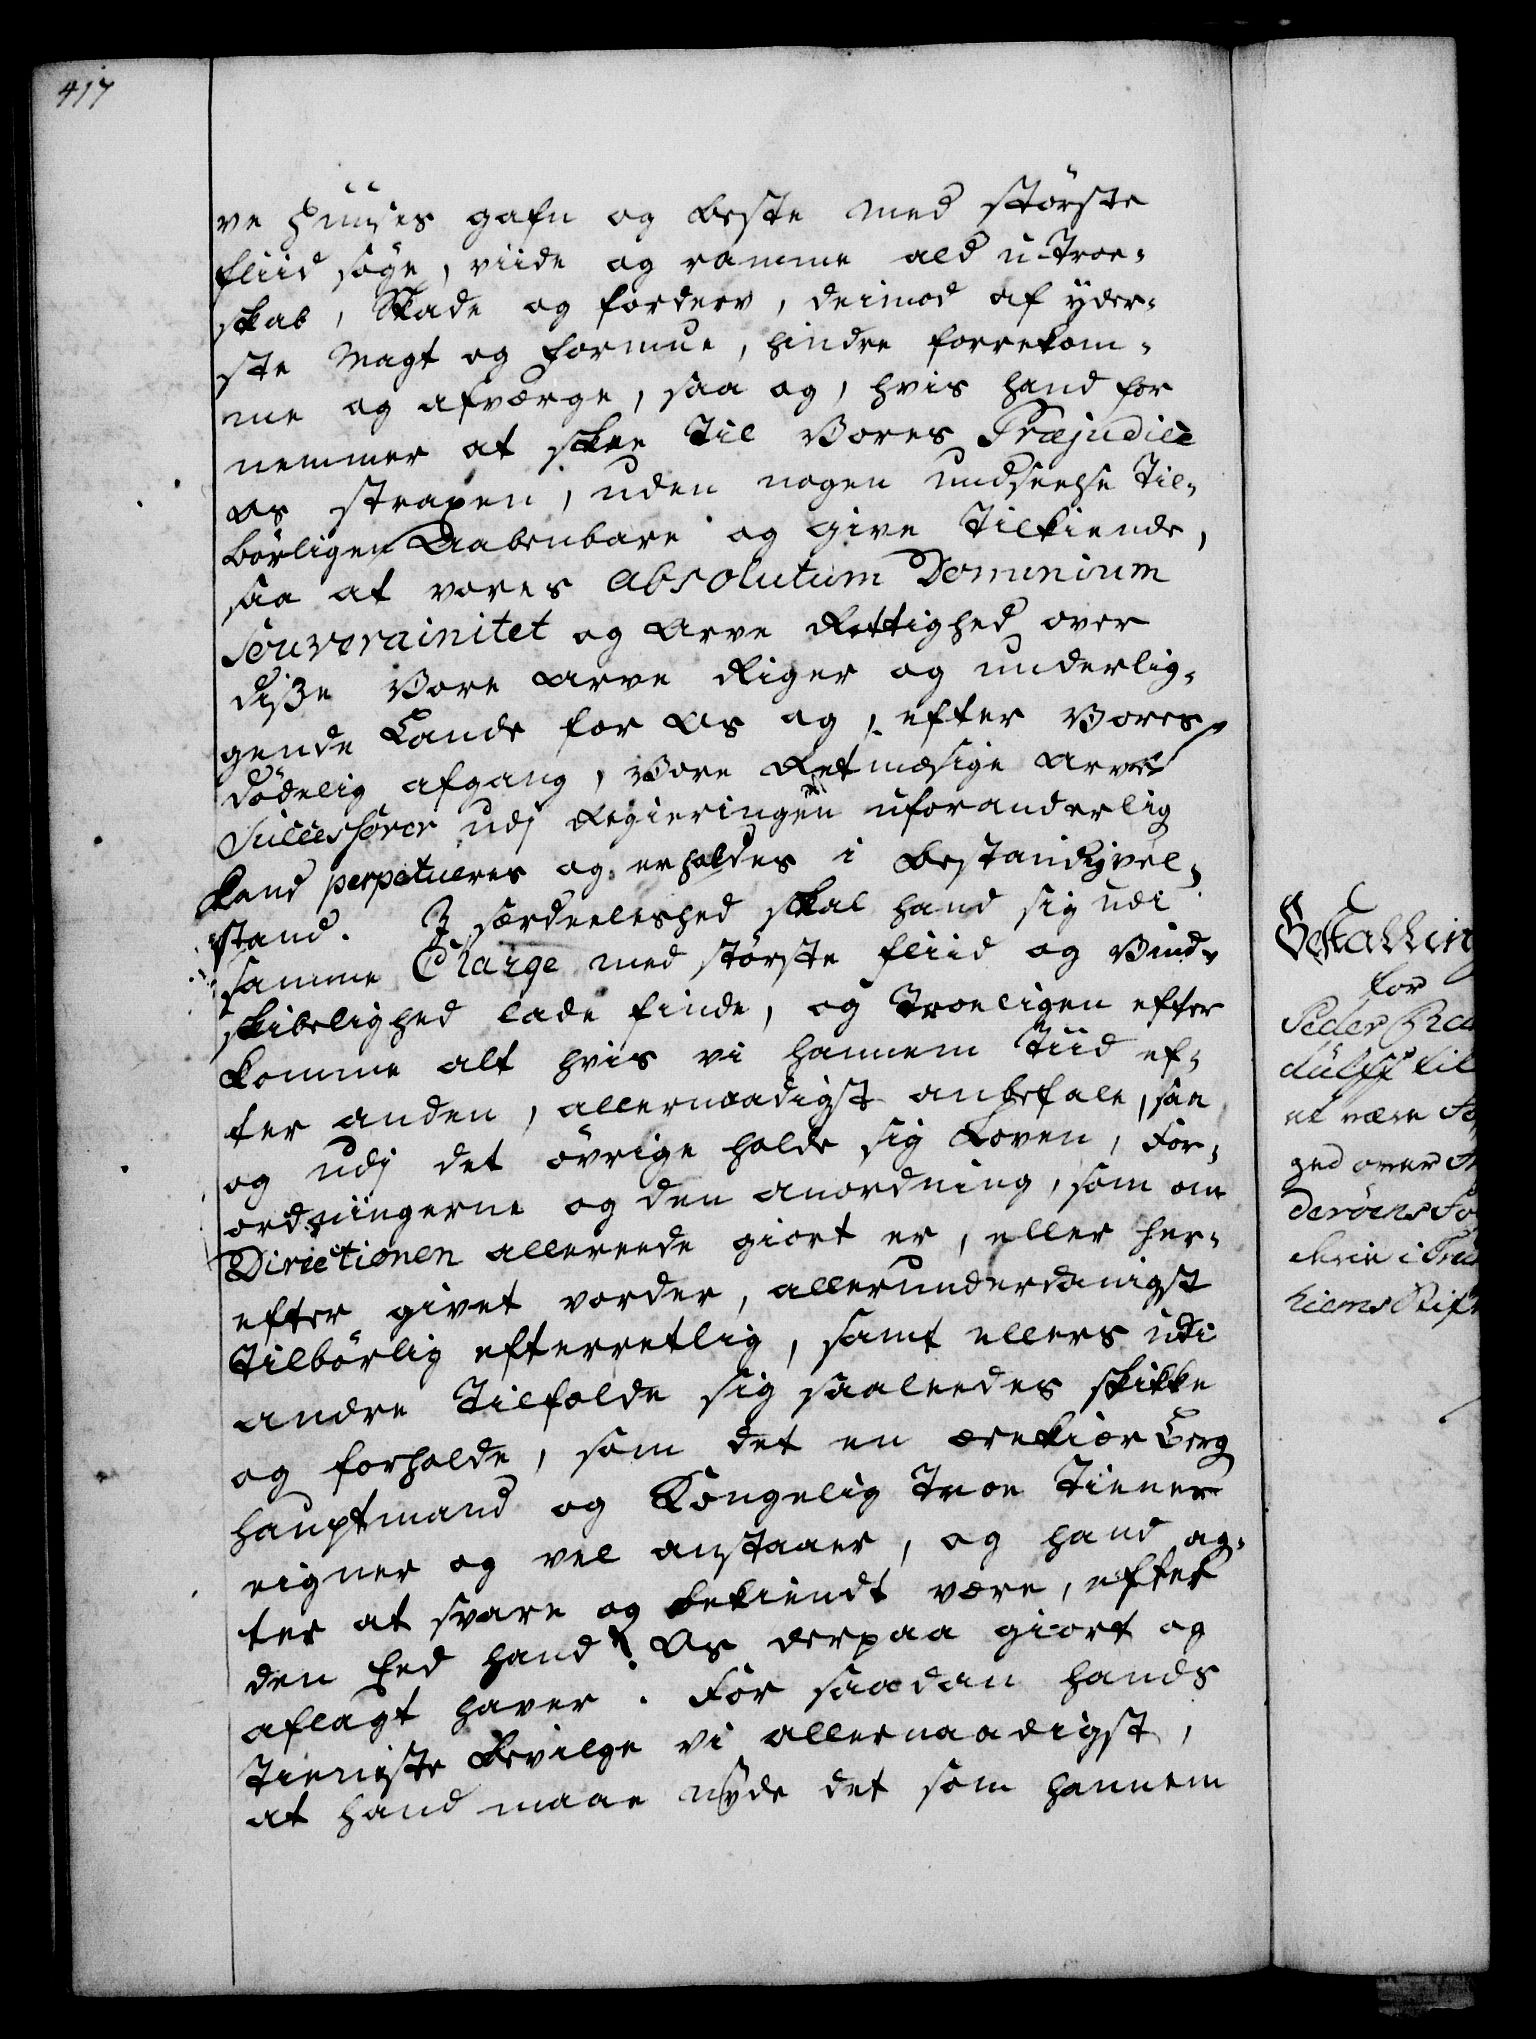 417
ve Huuses gafn og beste med störste
fliid söge, viide og ramme ald u-troe-
skab, Skade og forderv, deimod af yder-
ste Magt og formue, hindre forrekom-
me og afværge, saa og, hvis hand for
nemmer at skee til Vores Præjudice
os straxen, uden nogen undseelse til-
börligen Aabenbare og give tilkiende,
saa at vores absolutum Dominium
Souverainitet og Arve Rettighed over
diße Vore Arve Riger og underlig-
gende Lande for Os og, efter Vores
dödelig afgang, Vore Retmæsige Arve
Successorer udj Regieringen uforanderlig
kand perpetueres og erholdes i bestandig vel-
stand. I særdeeleshed skal hand sig udi
samme Charge med störste fliid og Vind-
skibelighed lade finde, og troeligen efter
komme alt hvis vi hannem tiid ef-
ter anden, allernaadigst anbefale, saa
og udj det övrige holde sig Loven, For-
ordningerne og den anordning, som om
Directionen allereede giort er, eller her-
efter givet vorder, allerunderdanigst
tilbörlig efterretlig, samt ellers udi
andre tilfælde sig saaleedes skikke
og forholde, som det en ærekiær Berg
hauptmand og Kongelig troe tiener
eigner og vel anstaaer, og hand ag-
ter at svare og bekiendt være, efter
den Eed hand Os derpaa giort og
aflagt haver. For saadan hands
tieniste bevilge vi allernaadigst,
at hand maae nyde det som hannem
Bestalling
for
Peder Ra
dulff til
at være Fo
ged over In
deröens Fo
derie i Tru
hiems Stift